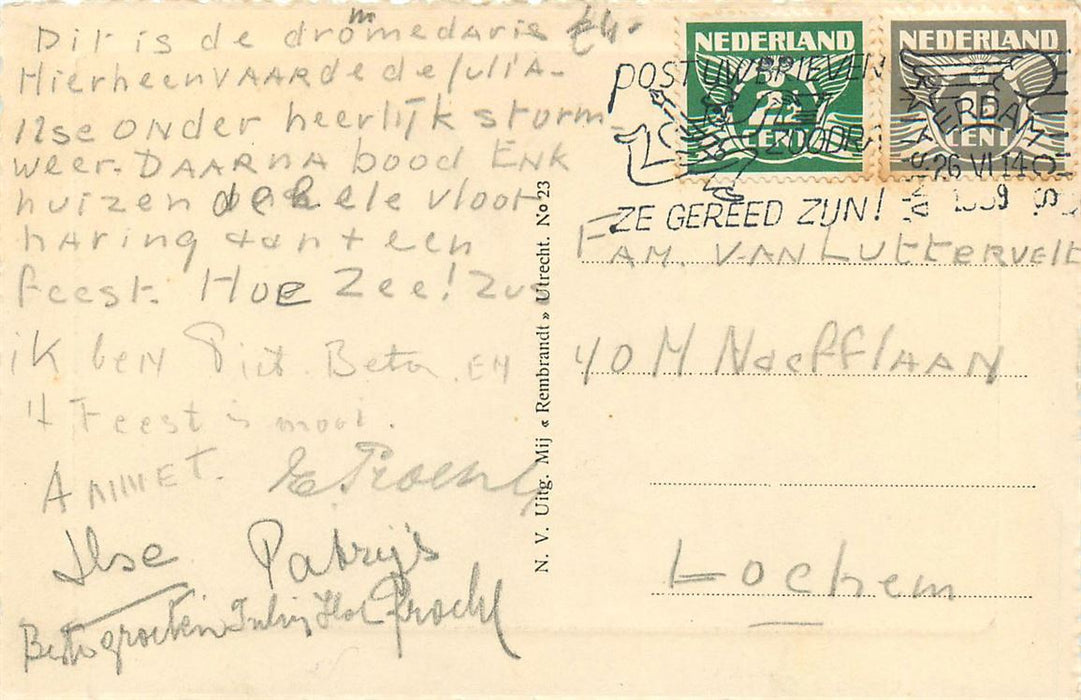 Dit is de dromedaris
Hierheen VAARDE de Julia-
Ilse ONDER heerlijk storm
weer. DAARNA bood ENK
huizen de hele vloot
haring aan + een
feest. Hoe Zee! Zus
ik ben Piet. Beton. EN
't Feest is mooi.
Ilse Patrijs
groeten
NEDERLAND
2½
CENT
NEDERLAND
1½
CENT
POST UW BRIEVEN
ZOODRA
ZE GEREED ZIJN!
AMSTERDAM
26 VI 14
1939
FAM. VAN LUTTERVELT
40 M Naefflaan
Lochem
N. V. Uitg. Mij « Rembrandt » Utrecht. No 23